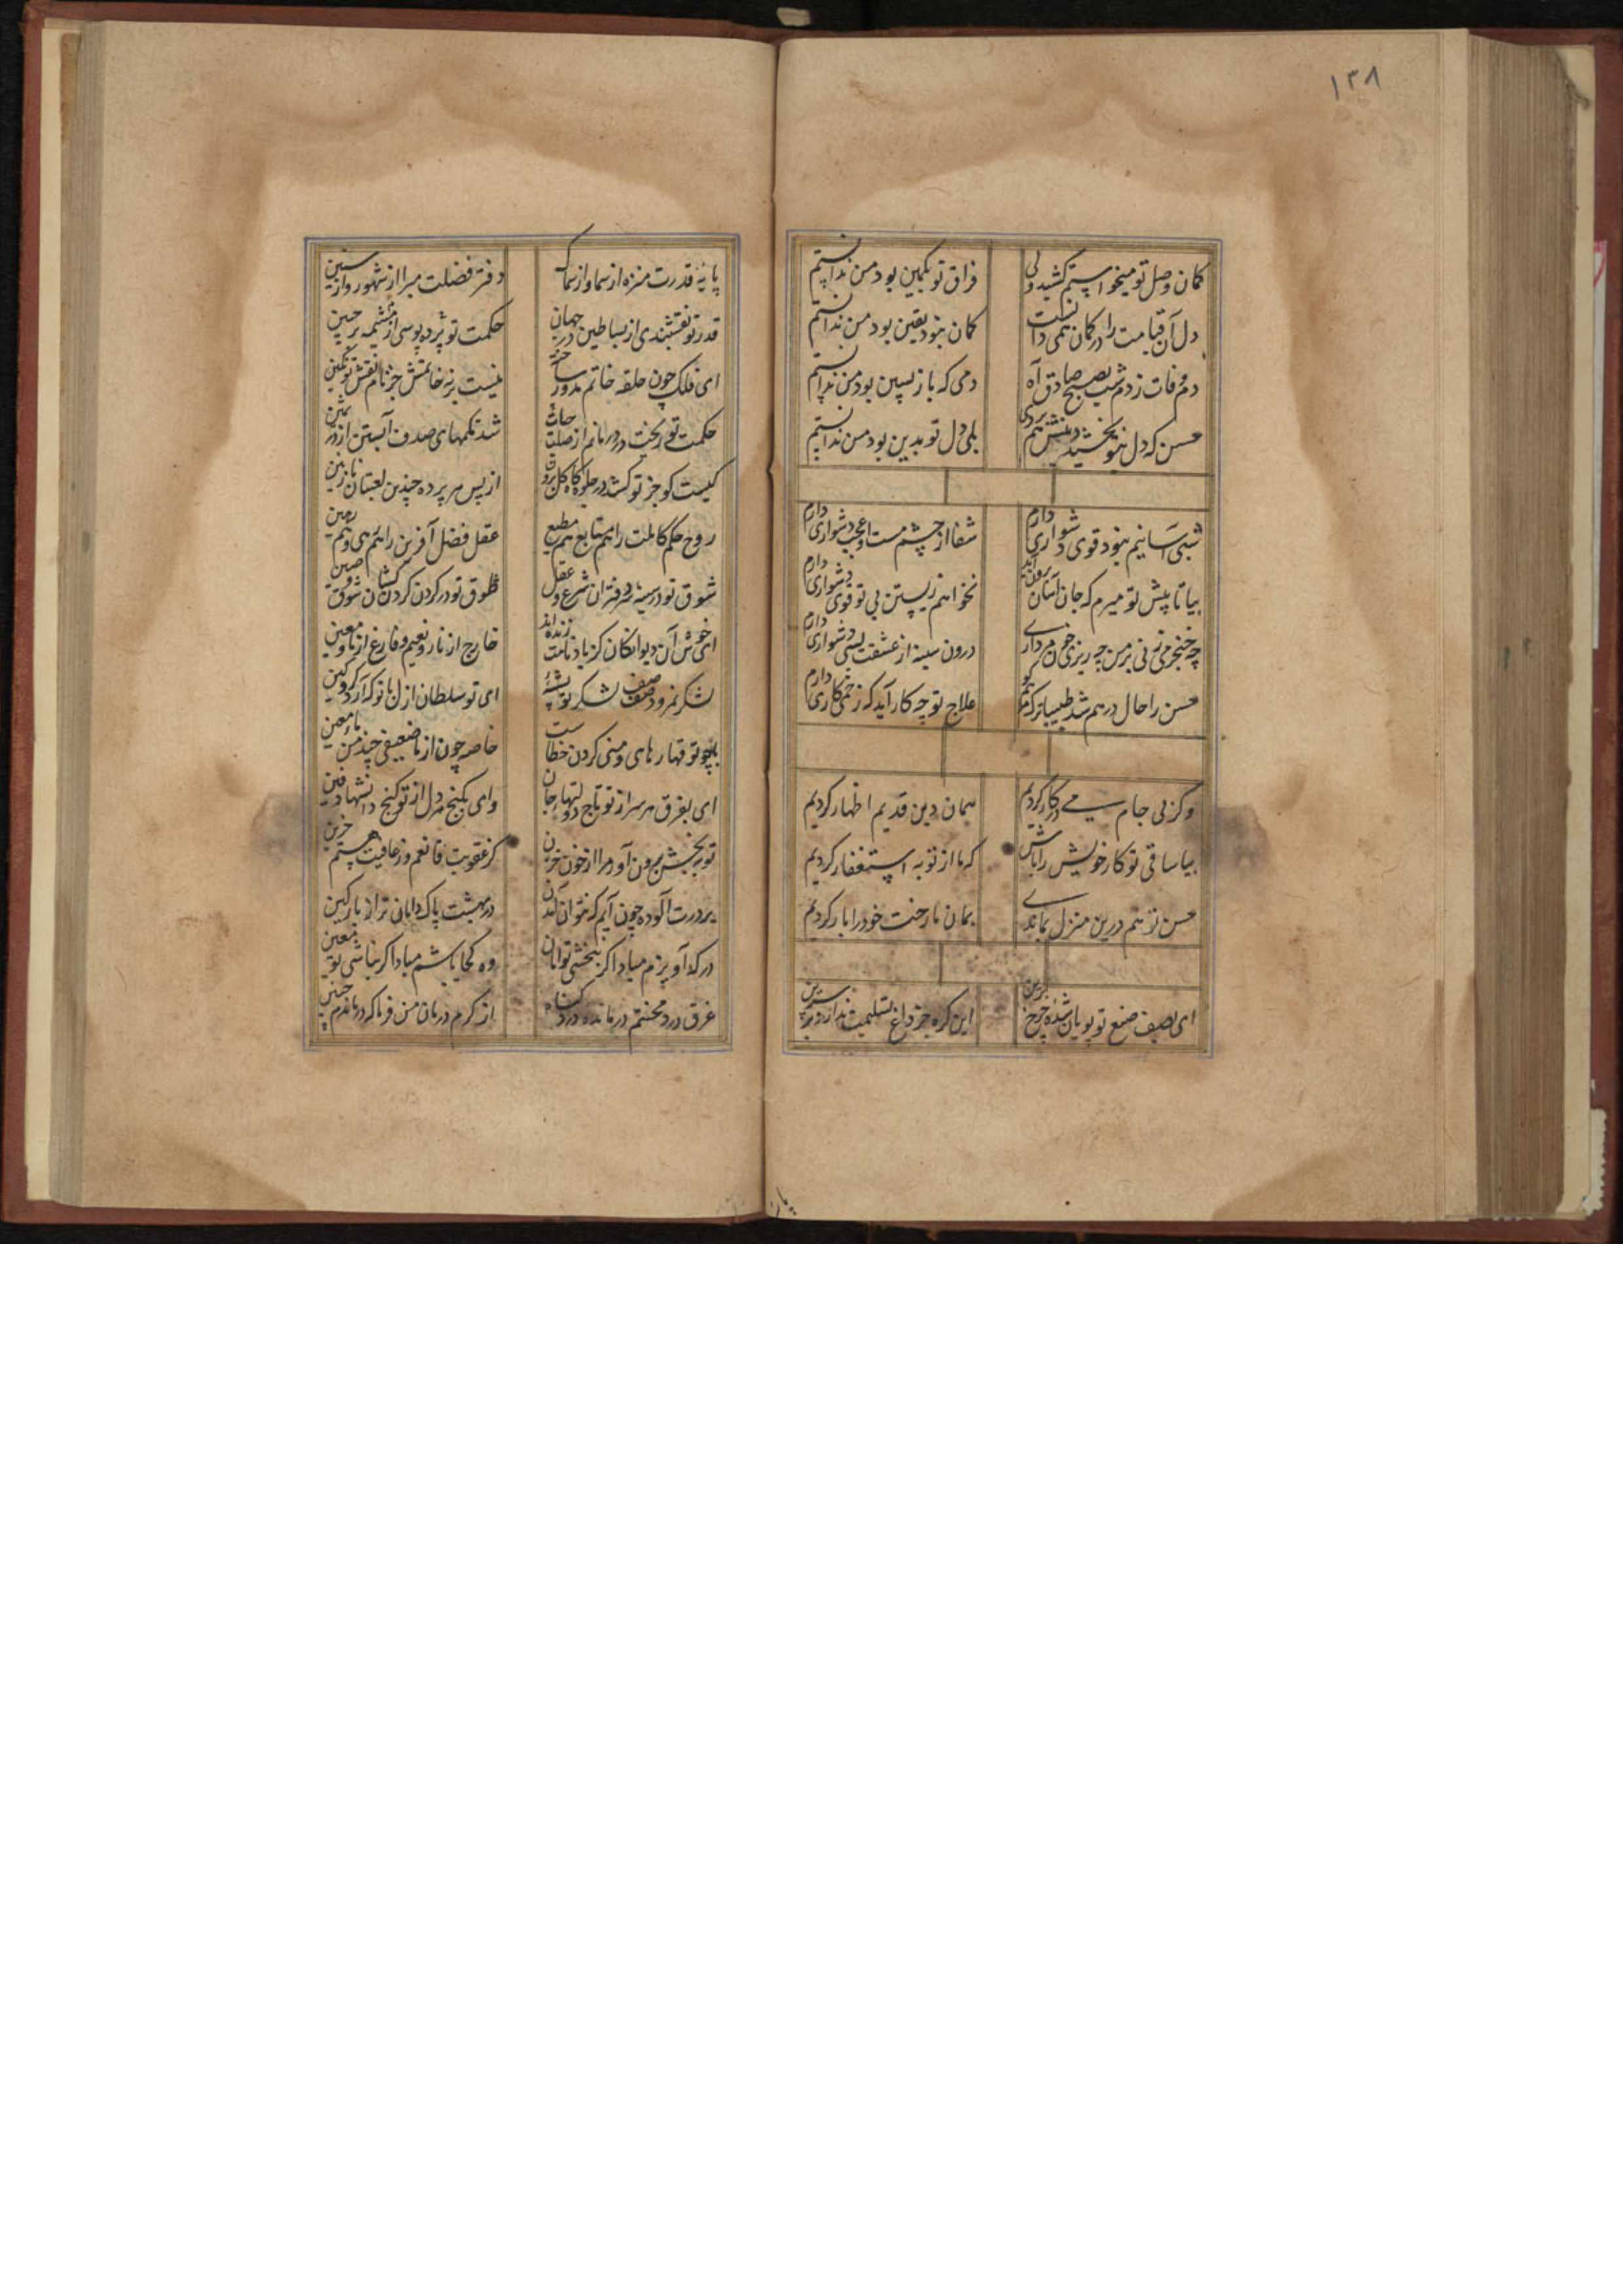 ۱۳۸
کمان وصل تو میخواستم کشید ولی
فراق تو بکمین بود من ندانستم
دل آن قیامت را در کمان همی دانست
کمان نبود یقین بود من ندانستم
دم وفات زدم شب بصبح صادق آه
دمی که باز پسین بود من ندانستم
حسن که دل بتو بخشید
بلی دل تو بدین بود من ندانستم
شبی آسانیم نبود قوی دشواری دارم
شفا از چشم مست و عجب دشواری دارم
بیا تا پیش تو میرم که جان آسان برون آید
نخواهم زیستن بی تو قوی دشواری دارم
چه خنجر می زنی بر من چه ریزی خون
درون سینه از عشقت بسی دشواری دارم
حسن را حال درهم شد طبیبا ترک کو
علاج تو چه کار آید که زخمی کاری دارم
وکر پی جام می در کار کردیم
همان دین قدیم اظهار کردیم
بیا ساقی تو کار خویش را باش
که ما از توبه استغفار کردیم
حسن تو هم درین منزل بماندی
بمان ما رخت خود را بار کردیم
ای بصیف صنع تو پویان شده چرخ برین
این کره جز داغ تسلیمت ندارد بر سرین
پایهٔ قدرت منزه از سما و از سمک
دفتر فضلت مبرا از شهور و از سنین
قدرت نقشبندی از بساطین در جهان
حکمت تو پرده پوسی از مشیمه بر جنین
ای فلک چون حلقه خاتم مدور ساخته
نیست بر خاتمش جز نام نقش تو نکین
حکمت تو ریخت در
شد شکمهای صدف آبستن از در ثمین
کیست کو جز تو کشد در جلوه کاه کل برون
از پس هر پرده چندین لعبتان نازنین
روح حکم کاملت را هم متابع هم مطیع
عقل فضل آفرین را هم رهی و هم رهین
شوق تو در سینهٔ دفتران شرع و عقل
طوق تو در کردن کردن کشان
ای خوش آن دیوانکان کز یاد نامت زنده اند
خارج از نار و نعیم و فارغ از ما و معین
لشکر نمرود و صف لشکر تو پشهٔ
ای تو سلطان ازل با تو که آرد کرد کین
با چو تو قهار مایی و منی کردن خطاست
خاصه چون از ما ضعیفی چند من ماء مهین
ای بفرق هر سر از تو تاج دولتها جان
وای بکنج هر دل از تو کنج دانشها دفین
تو ببخشش برون آور مرا از خون حزین
کز عقوبت قانعم وز عافیت هستم حزین
بر درت آلوده چون آیم که نتوان آمدن
در بهشت پاک دامان تر از پارکین
در که آویزم مبادا کر نبخشی تو امان
وه کجا باشم مبادا کر نباشی تو معین
غرق درد محنتم درمانده در کناه
از کرم درمان من فرما که درماندم چنین